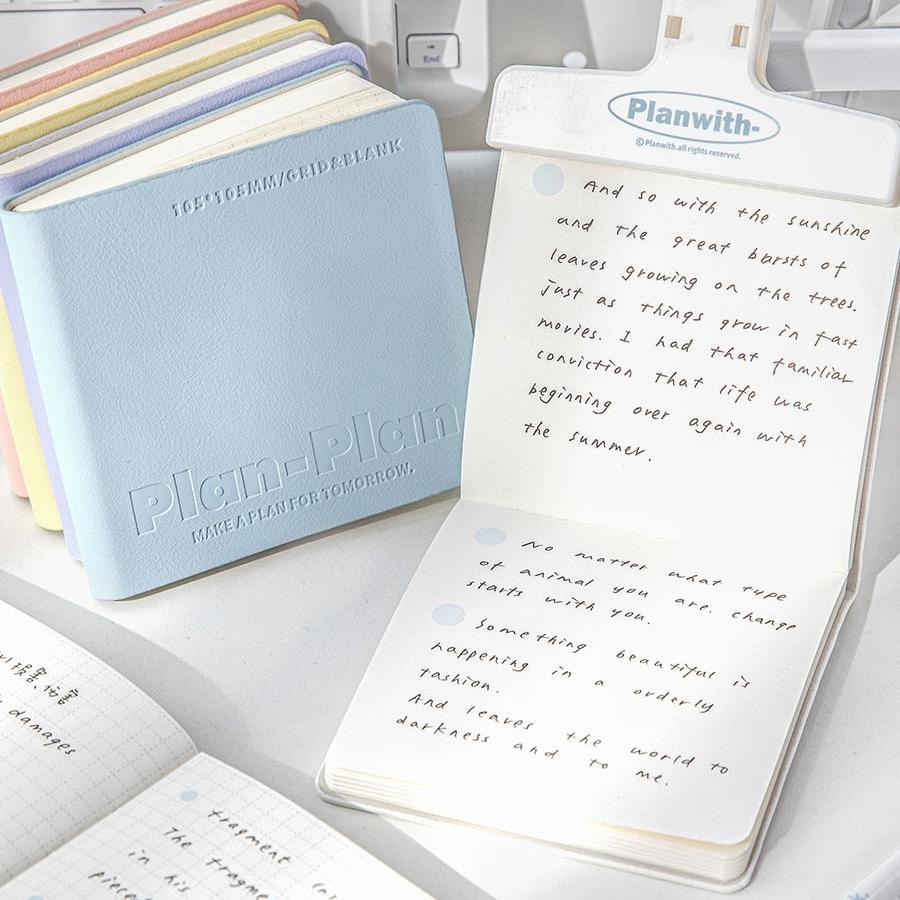 End
105*105MM/GRID&BLANK
Plan-Plan
MAKE A PLAN FOR TOMORROW.
Planwith-
©Planwith.all rights reserved.
And so with the sunshine
and the great bursts of
leaves growing on the trees.
just as things grow in fast
movies. I had that familiar
conviction that life was
beginning over again with
the summer.
No matter what type
of animal you are. change
starts with you.
Something beautiful is
happening in a orderly
fashion.
And leaves the world to
darkness and to me.
损害
damages
fragment
The fragme
in his
piece